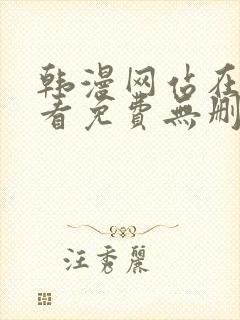 韩漫网站在
看免費無删
汪秀麗